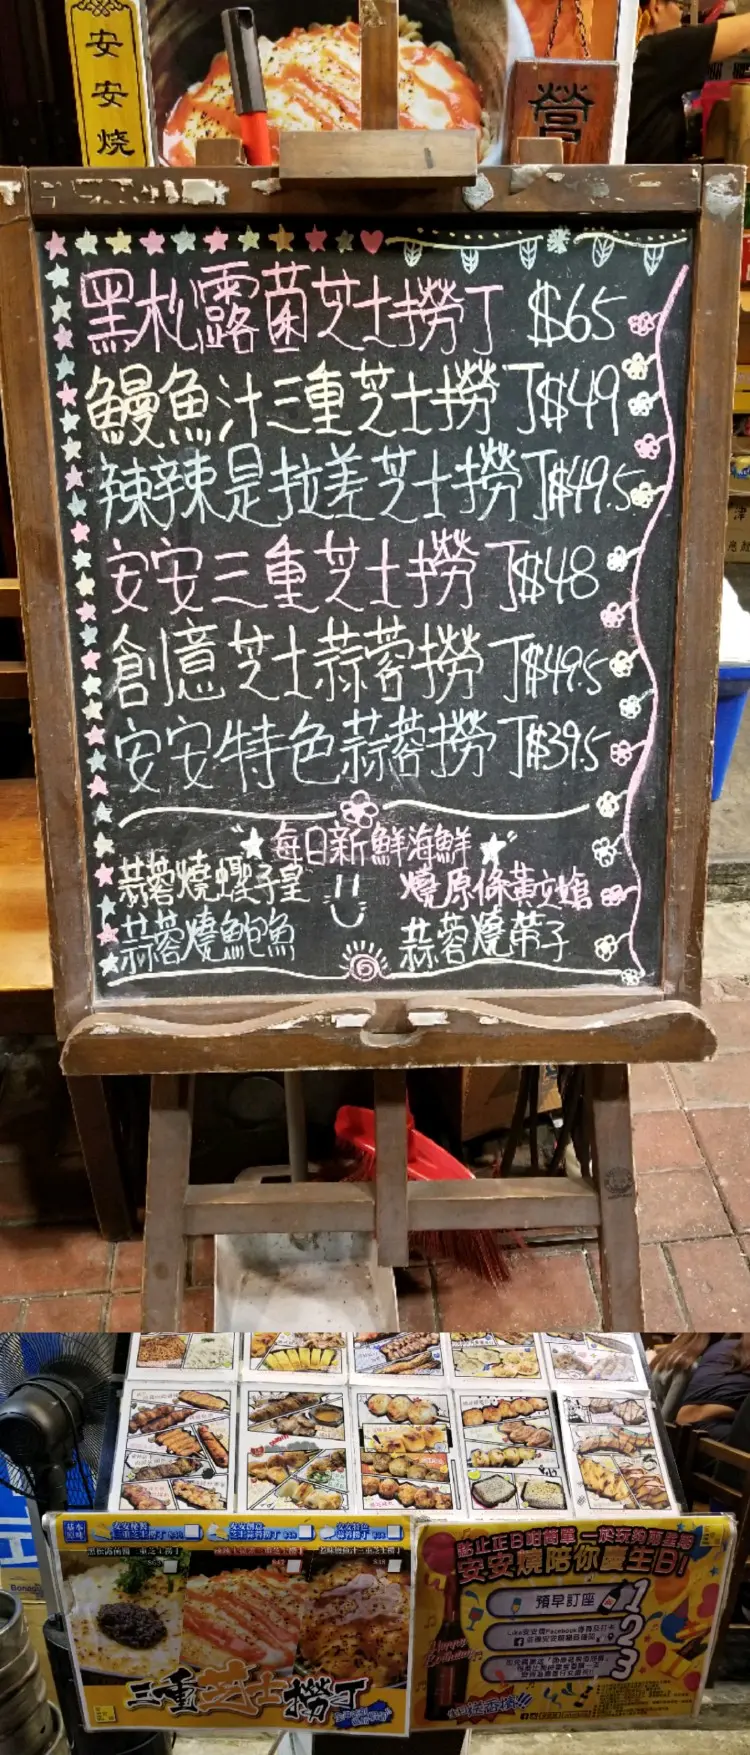 安安燒
營
黑松露菌芝士撈丁 $65
鰻魚汁三重芝士撈丁 $49
辣辣是拉差芝士撈丁 $49.5
安安三重芝士撈丁 $48
創意芝士蒜蓉撈丁 $49.5
安安特色蒜蓉撈丁 $39.5
每日新鮮海鮮
蒜蓉燒蟶子皇
燒原條黃立鯧
蒜蓉燒鮑魚
蒜蓉燒帶子
三重芝士撈丁
安安燒陪你慶生日!
預早訂座
1
2
3